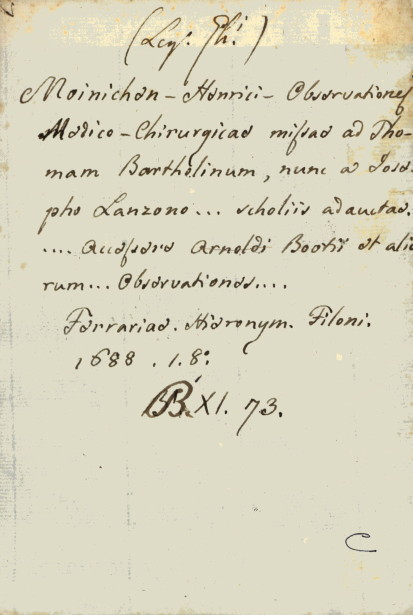 (Leg. Ghi.)
Moinichen - Henrici - Observationes
Medico - Chirurgicae missae ad Tho-
mam Bartholinum, nunc a Jose-
pho Lanzono ... scholiis adauctae.
.... Accessere Arnoldi Bootii et alio
rum ... Observationes ....
Ferrariae. Hieronym. Filoni.
1688 . 1.8°.
BB. XI. 73.
C